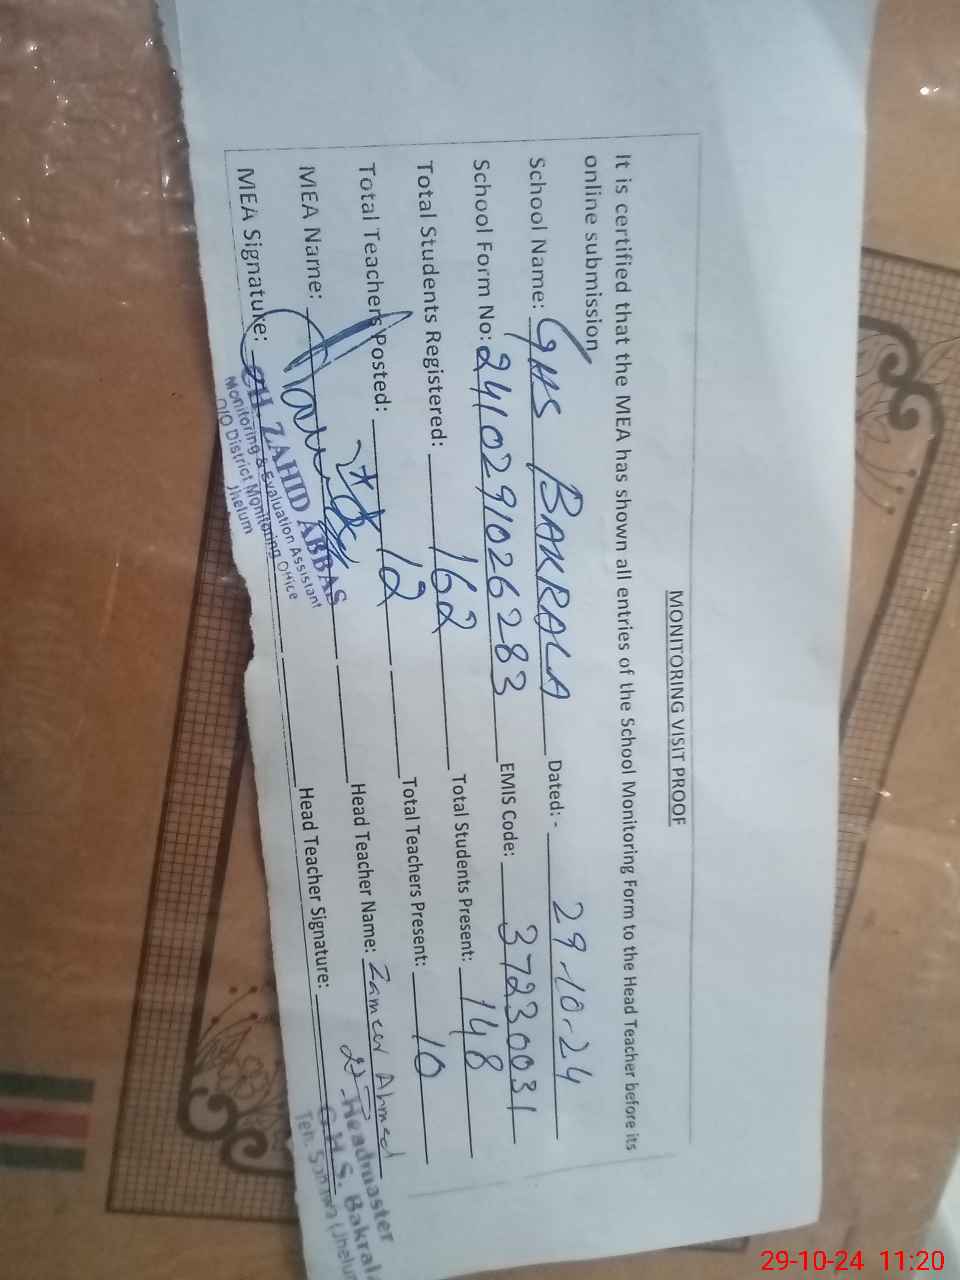 MONITORING VISIT PROOF
It is certified that the MEA has shown all entries of the School Monitoring Form to the Head Teacher before its
online submission
School Name: GHS BAKRALA Dated:- 29-10-24
School Form No: 2410291026283 EMIS Code: 37230031
Total Students Registered: 162 Total Students Present: 148
Total Teachers Posted: 12 Total Teachers Present: 10
MEA Name: Head Teacher Name: Zameer Ahmed
MEA Signature: Head Teacher Signature:
CH. ZAHID ABBAS
Monitoring & Evaluation Assistant
O/O District Monitoring Office
Jhelum
Headmaster
G.H.S. Bakrala
Teh. Sohawa (Jhelum
29-10-24 11:20